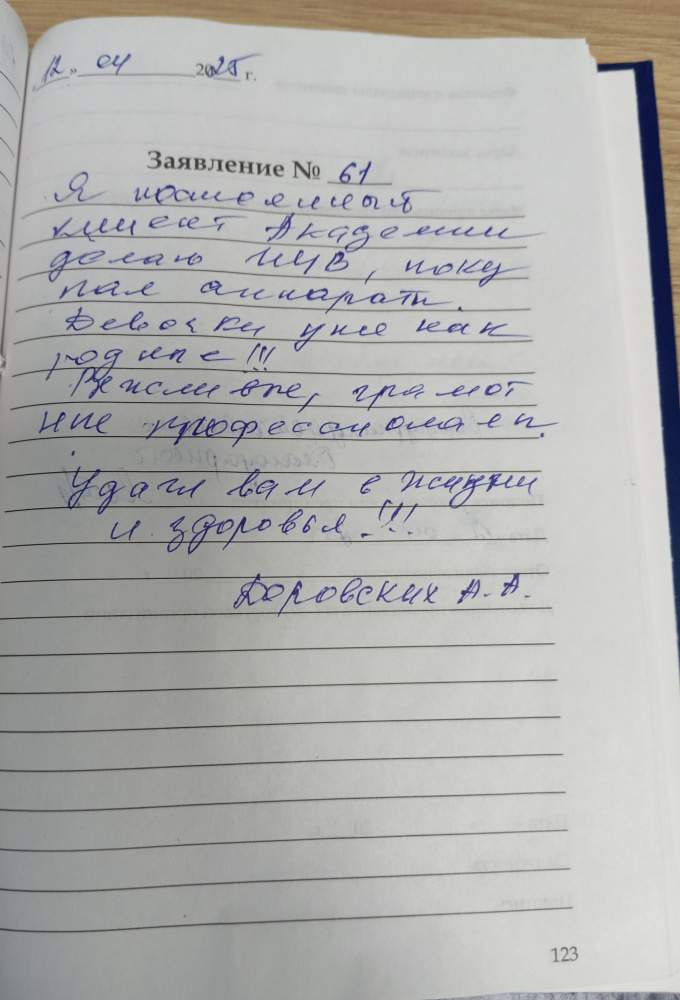 12 » 04 2025 г.
Заявление № 61
Я постоянный
клиент Академии
делаю ИЧВ, поку
пал аппараты.
Девочки уже как
родные!!!
Вежливые, грамот
ные профессионалы.
Удачи вам в жизни
и здоровья.!!!
Доровских А.А.
123